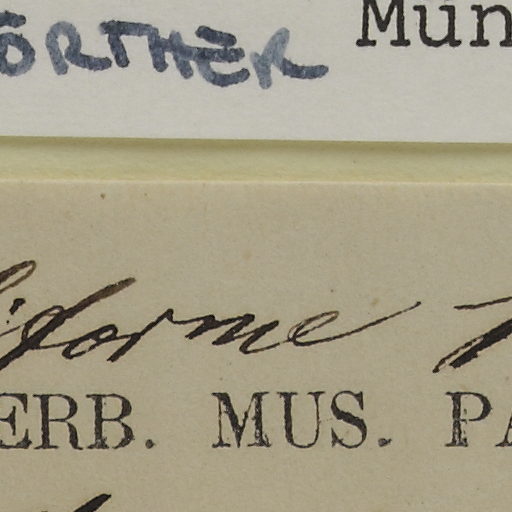 ÖRTHER Mün
iforme
ERB. MUS. PA